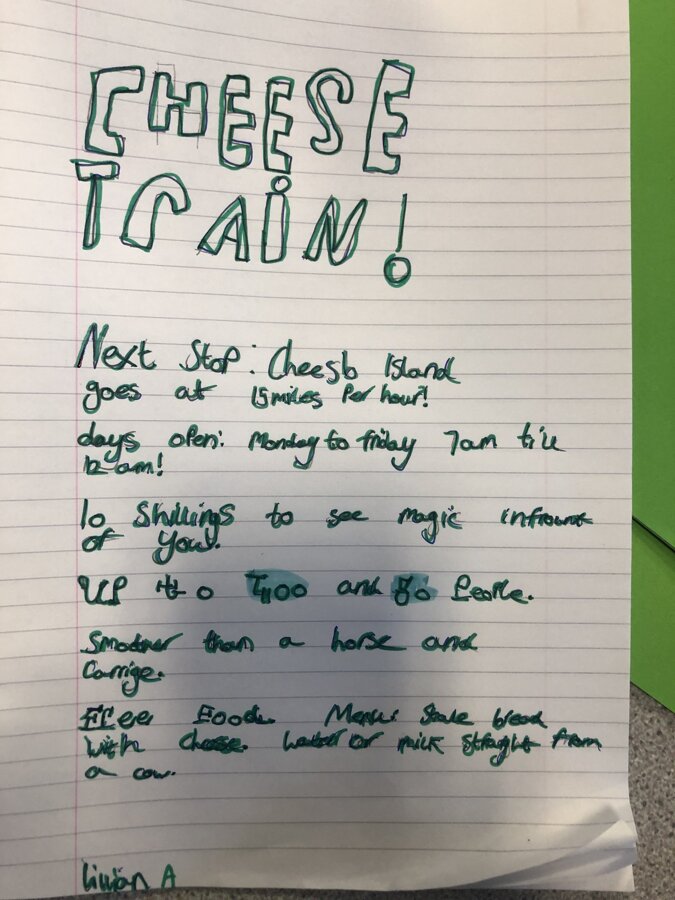 CHEESE
TRAiN!
Next Stop: Cheesb Island
goes at 15miles Per hour!
days open: Monday to friday 7am till
12 am!
10 Shillings to see magic infrount
of you!
UP to and 80 People.
Smoother than a horse and
Carrige.
Free Food. Menu: Stale bread
with cheese. water or milk straght from
a cow.
Lillian A